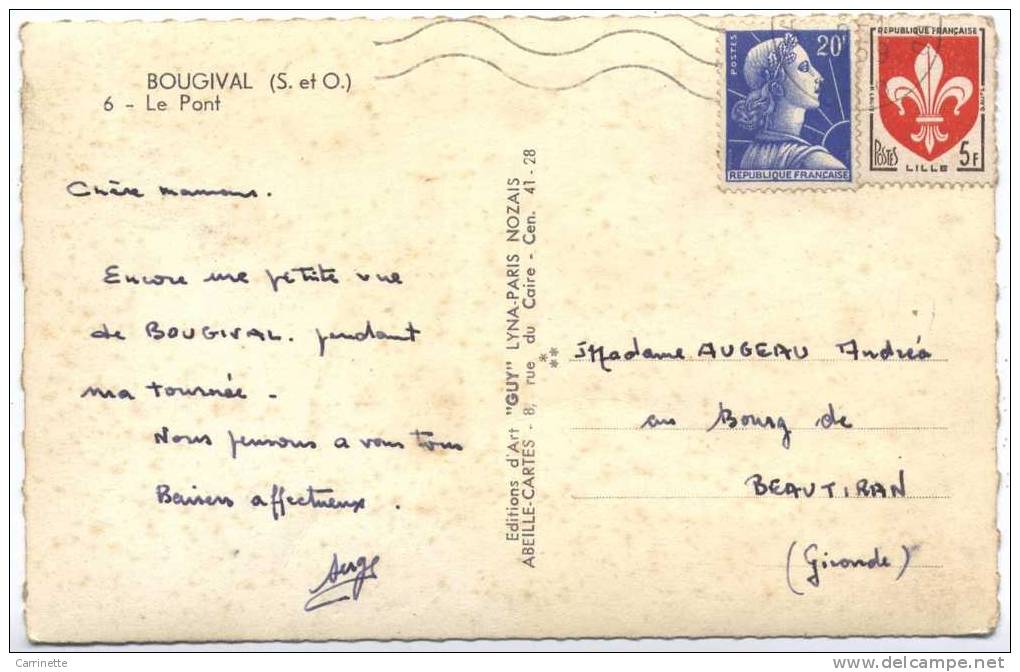 BOUGIVAL (S. et O.)
6 - Le Pont
Chère maman.
Encore une petite vue
de BOUGIVAL. pendant
ma tournée -
Nous pensons a vous tous
Baisers affectueux.
Serge
Editions d'Art "GUY" LYNA-PARIS NOZAIS
ABEILLE-CARTES - 8, rue du Caire - Cen. 41-28
POSTES
20F
REPUBLIQUE FRANÇAISE
REPUBLIQUE FRANÇAISE
POSTES
5F
LILLE
Madame AUGEAU Andréa
au Bourg de
BEAUTIRAN
(Gironde)
Carrinette
www.delcampe.net